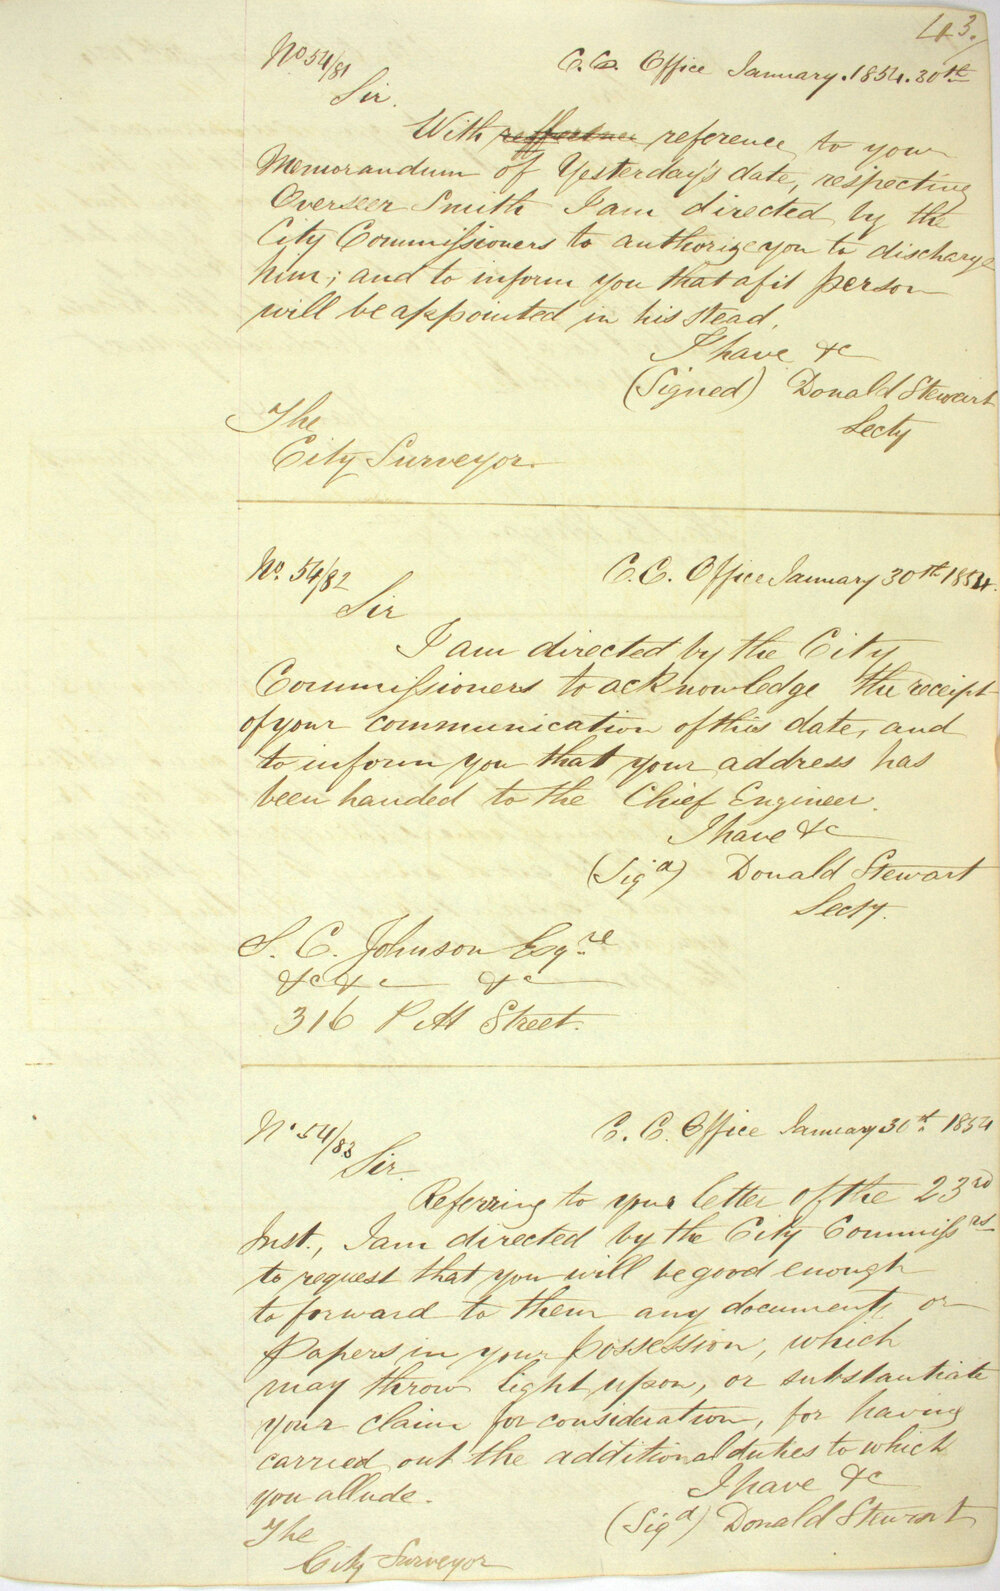 43.
No 54/81 C.C. Office January. 1854. 30th
Sir.
With reference to your
Memorandum of Yesterday's date, respecting
Overseer Smith I am directed by the
City Commissioners to authorize you to discharge
him; and to inform you that a fit person
will be appointed in his stead.
I have &c
(Signed) Donald Stewart
Secty
The
City Surveyor.
No. 54/82 C.C. Office January 30th 1854.
Sir
I am directed by the City
Commissioners to acknowledge the receipt
of your communication of this date, and
to inform you that your address has
been handed to the Chief Engineer.
I have &c
(Sigd) Donald Stewart
Secty.
S. C. Johnson Esqre
&c &c &c
316 Pitt Street.
No 54/83 C.C. Office January 30th 1854
Sir.
Referring to your letter of the 23rd
Inst., I am directed by the City Commissrs
to request that you will be good enough
to forward to them any documents or
Papers in your possession, which
may throw light upon, or substantiate
your claim for consideration, for having
carried out the additional duties to which
you allude.
I have &c
(Sigd) Donald Stewart
The
City Surveyor